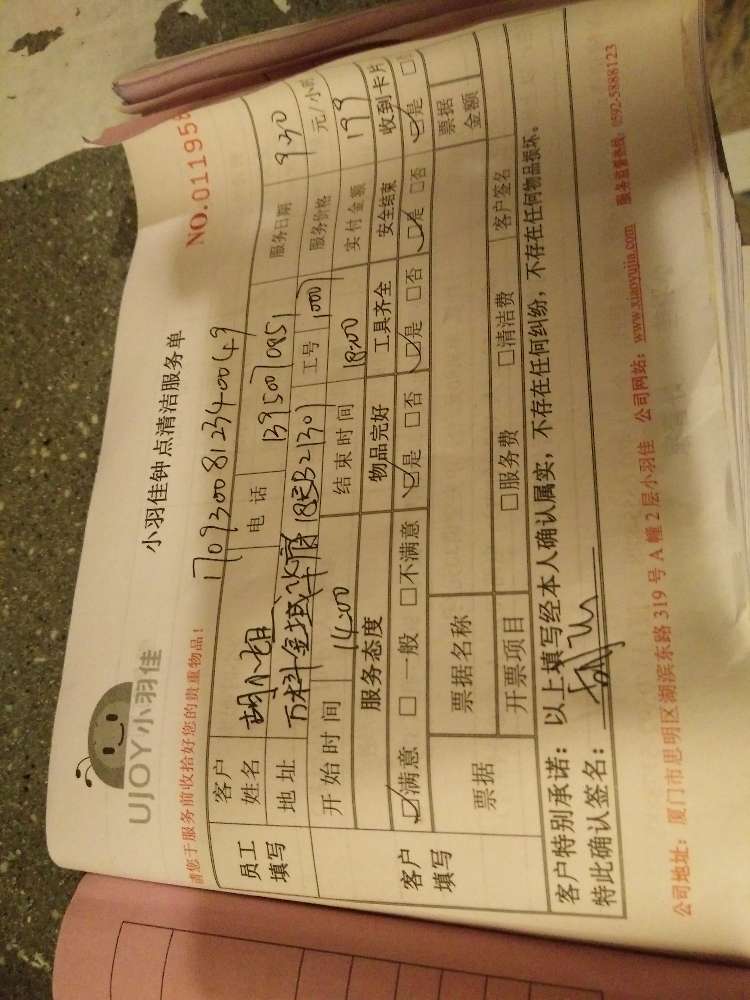 UJOY小羽佳
小羽佳钟点清洁服务单
NO.011958
请您于服务前收拾好您的贵重物品!
17093008123400049
员工填写 客户姓名 胡小姐 电话 13950070951 服务日期 9.30
地址 万科金域华府18#B2130 工号 1000 服务价格 元/小时
开始时间 14:00 结束时间 18:00 实付金额 199
客户填写 服务态度 物品完好 工具齐全 安全结束 收到卡片
☑满意 □一般 □不满意 ☑是 □否 ☑是 □否 ☑是 □否 ☑是 □
票据 票据名称 票据金额
开票项目 □服务费 □清洁费 客户签名
客户特别承诺:以上填写经本人确认属实,不存在任何纠纷,不存在任何物品损坏。
特此确认签名:
公司地址:厦门市思明区湖滨东路 319 号 A 幢 2 层小羽佳 公司网站:www.xiaoyujia.com 服务监督热线:0592-5888123